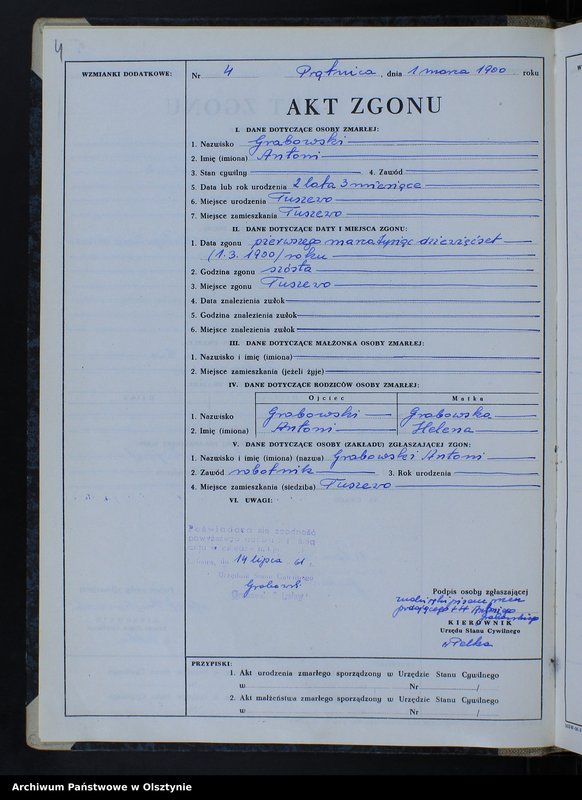 4
WZMIANKI DODATKOWE:
Nr 4 Prątnica, dnia 1 marca 1900 roku
AKT ZGONU
I. DANE DOTYCZĄCE OSOBY ZMARŁEJ:
1. Nazwisko Grabowski
2. Imię (imiona) Antoni
3. Stan cywilny 4. Zawód
5. Data lub rok urodzenia 2 lata 3 miesiące
6. Miejsce urodzenia Tuszewo
7. Miejsce zamieszkania Tuszewo
II. DANE DOTYCZĄCE DATY I MIEJSCA ZGONU:
1. Data zgonu pierwszego marca tysiąc dziewięćset
(1.3. 1900) roku
2. Godzina zgonu szósta
3. Miejsce zgonu Tuszewo
4. Data znalezienia zwłok
5. Godzina znalezienia zwłok
6. Miejsce znalezienia zwłok
III. DANE DOTYCZĄCE MAŁŻONKA OSOBY ZMARŁEJ:
1. Nazwisko i imię (imiona)
2. Miejsce zamieszkania (jeżeli żyje)
IV. DANE DOTYCZĄCE RODZICÓW OSOBY ZMARŁEJ:
Ojciec Matka
1. Nazwisko Grabowski Grabowska
2. Imię (imiona) Antoni Helena
V. DANE DOTYCZĄCE OSOBY (ZAKŁADU) ZGŁASZAJĄCEJ ZGON:
1. Nazwisko i imię (imiona) (nazwa) Grabowski Antoni
2. Zawód robotnik 3. Rok urodzenia
4. Miejsce zamieszkania (siedziba) Tuszewo
VI. UWAGI:
Poświadcza się zgodność
14 lipca 61 r.
Urzędu Stanu Cywilnego
Podpis osoby zgłaszającej
KIEROWNIK
Urzędu Stanu Cywilnego
PRZYPISKI:
1. Akt urodzenia zmarłego sporządzony w Urzędzie Stanu Cywilnego
w Nr /
2. Akt małżeństwa zmarłego sporządzony w Urzędzie Stanu Cywilnego
w Nr /
Archiwum Państwowe w Olsztynie